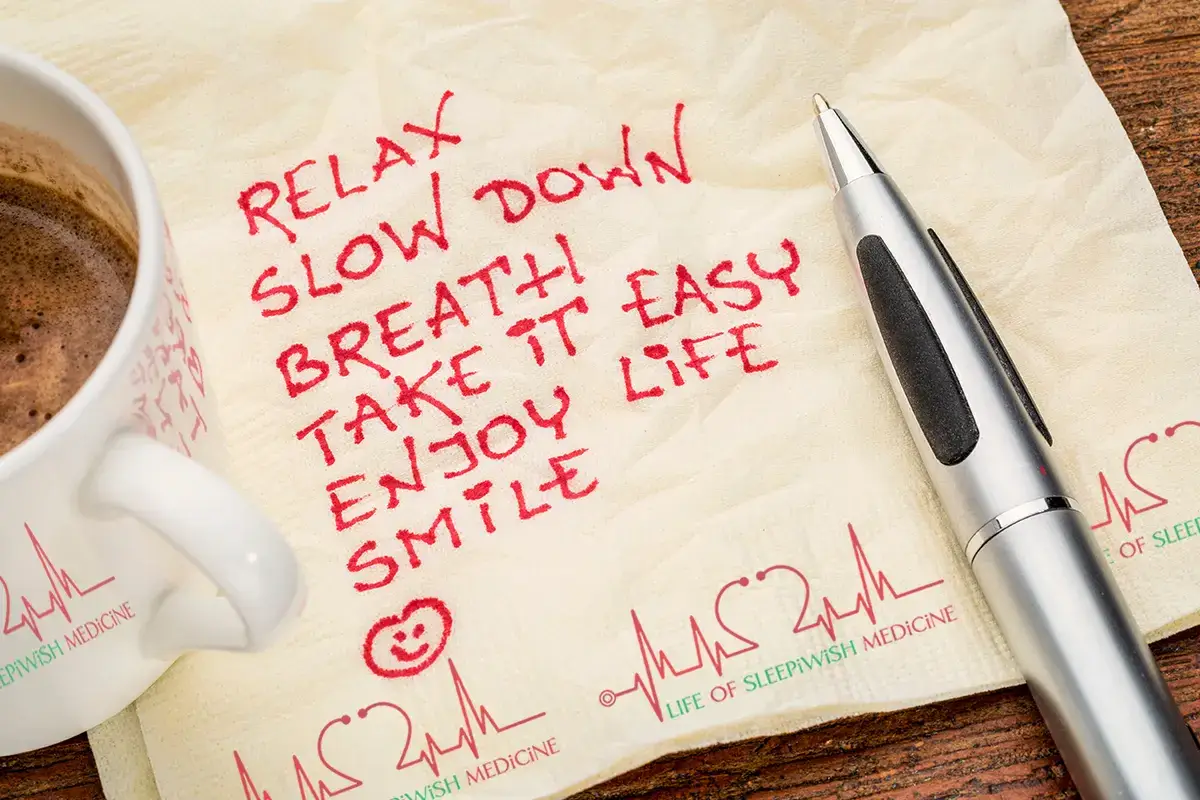 RELAX
SLOW DOWN
BREATH
TAKE iT EASY
ENJOY LiFE
SMiLE
LIFE OF SLEEPiWiSH MEDICiNE
SLEEPiWiSH MEDICiNE
MEDICiNE
OF SLEEP